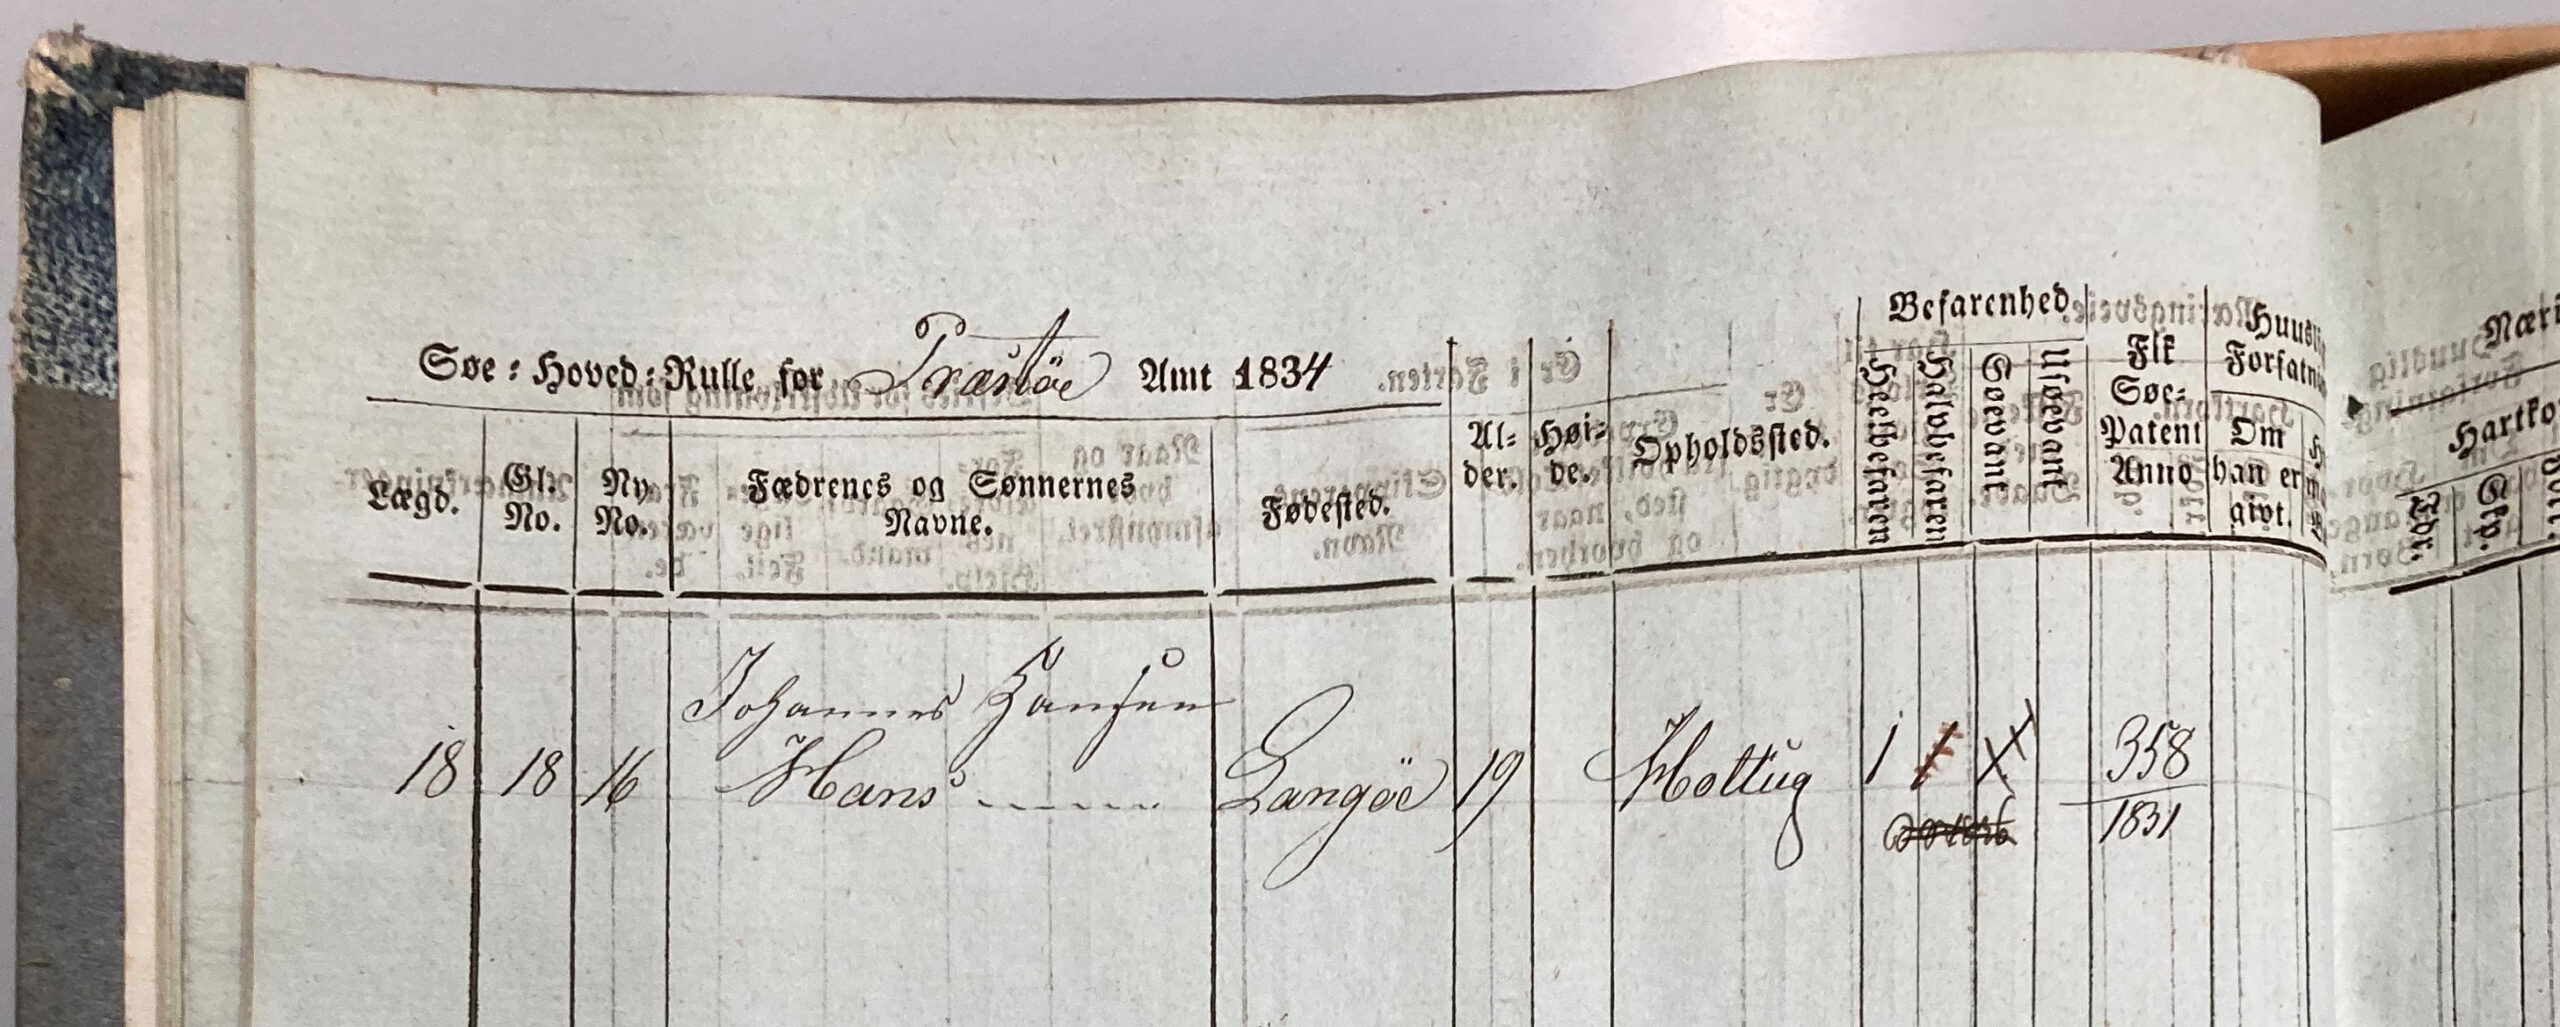 Søe-Hoved-Rulle for Præstöe Amt 1834
Befarenhed
Lægd.
Gl. No.
Ny No.
Fædrenes og Sønnernes Navne.
Fødested.
Al-
der.
Høi-
de.
Opholdssted.
Heelbefaren
Halvbefaren
Søevant
Usøevant
Fik
Søe-
Patent
Anno
Forfatn
Om
han er
givt.
Næri
Hartko
Tdr.
Skp.
Johannes Hansen
18 18 16 Hans Langöe 19 Holtug 1 1 358
1831